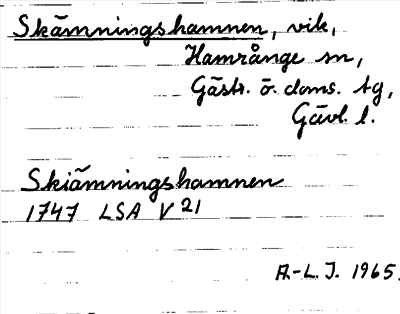 Skämningshamnen, vik,
Hamrånge sn,
Gästr. ö. doms. tg,
Gävl. l.
Skiämningshamnen
1747 LSA V 21
A.-L. J. 1965.